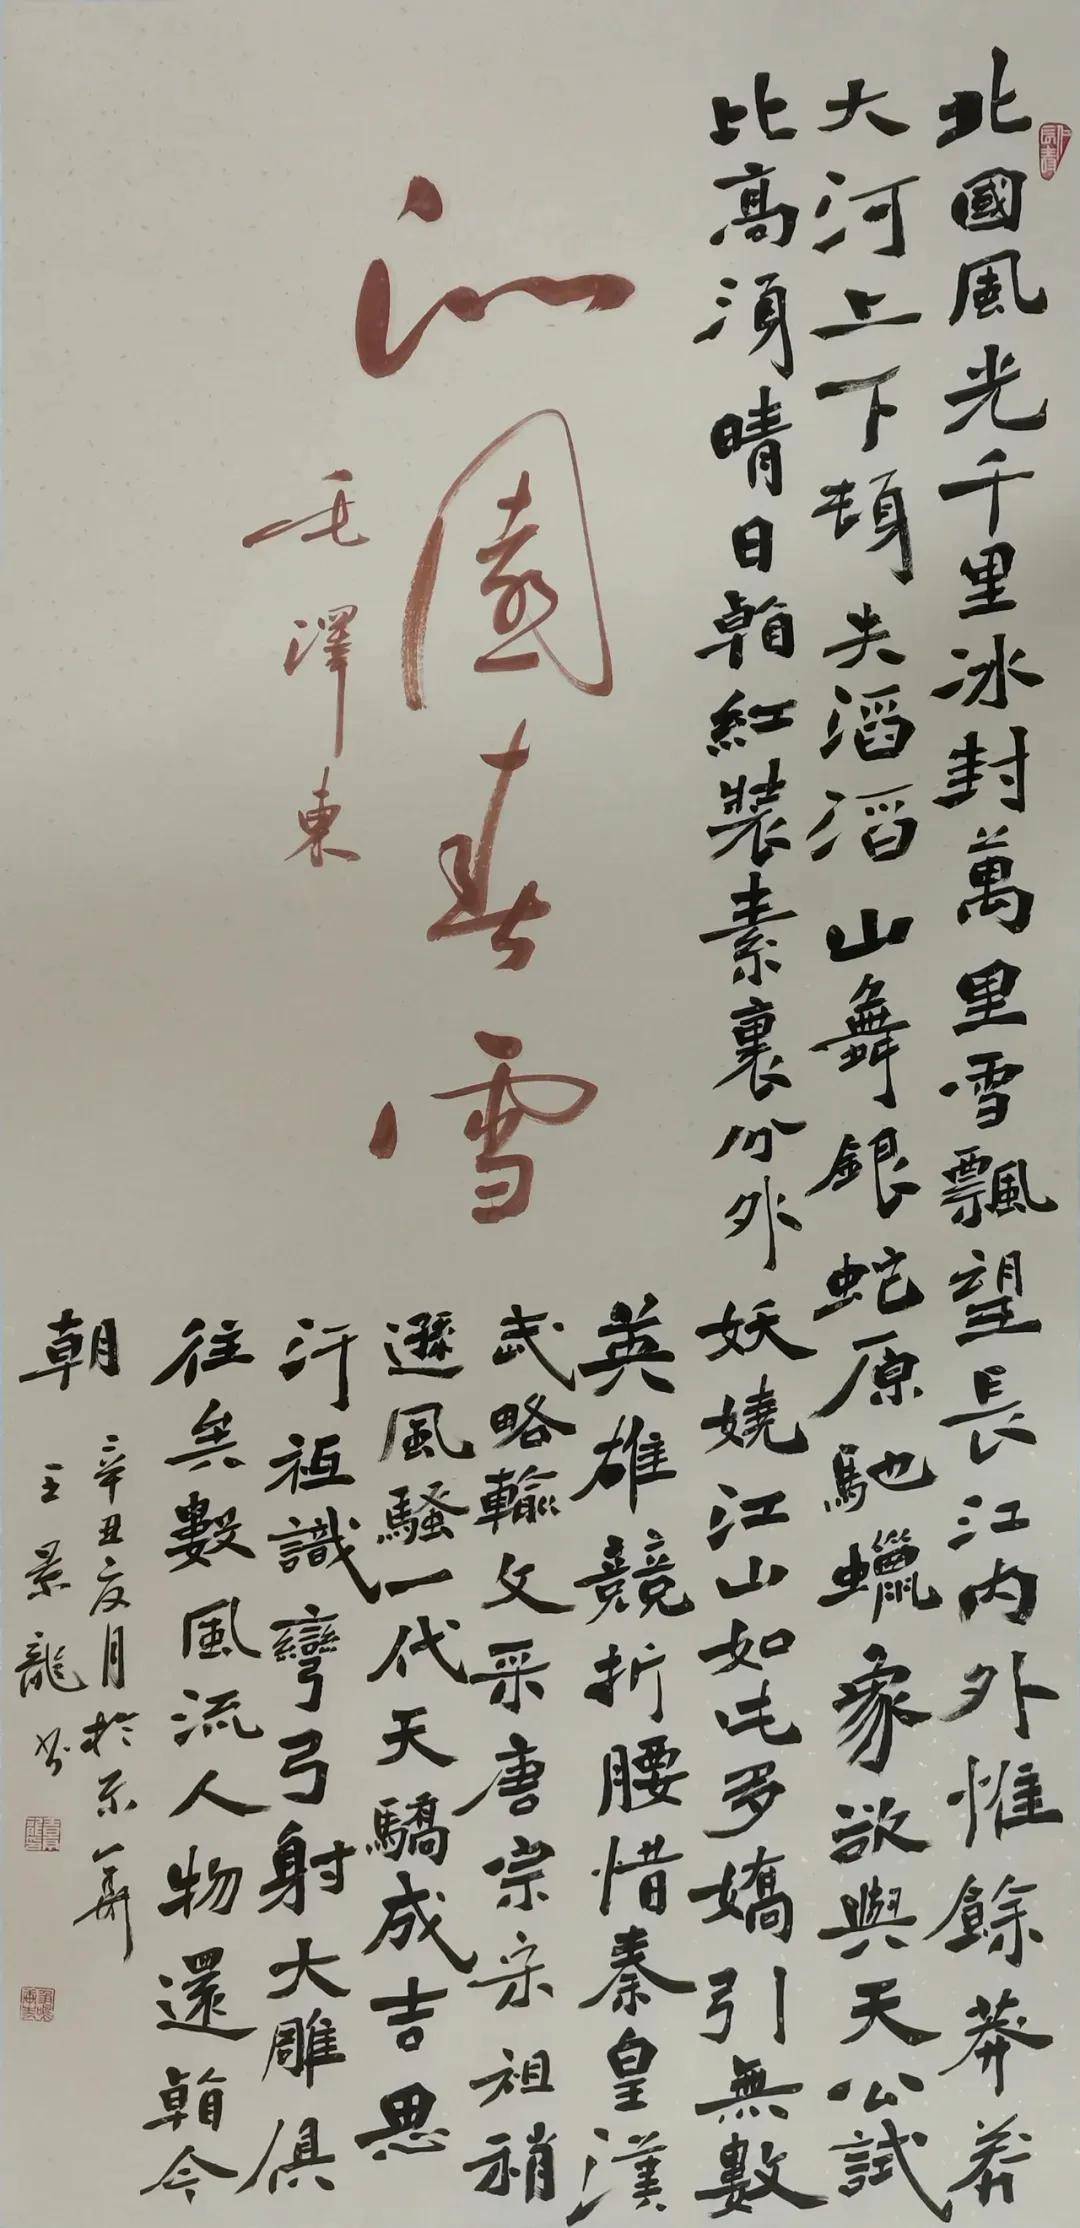 北國風光千里冰封萬里雪飄望長江内外惟餘莽莽
大河上下頓失滔滔山舞銀蛇原馳蠟象欲與天公試
比高須晴日看紅裝素裹分外妖嬈江山如此多嬌引無數
英雄競折腰惜秦皇漢
武略輸文采唐宗宋祖稍
遜風騷一代天驕成吉思
汗祇識彎弓射大雕俱
往矣數風流人物還看今
朝
沁園春雪
毛澤東
辛丑夏月於京華
王景龍書